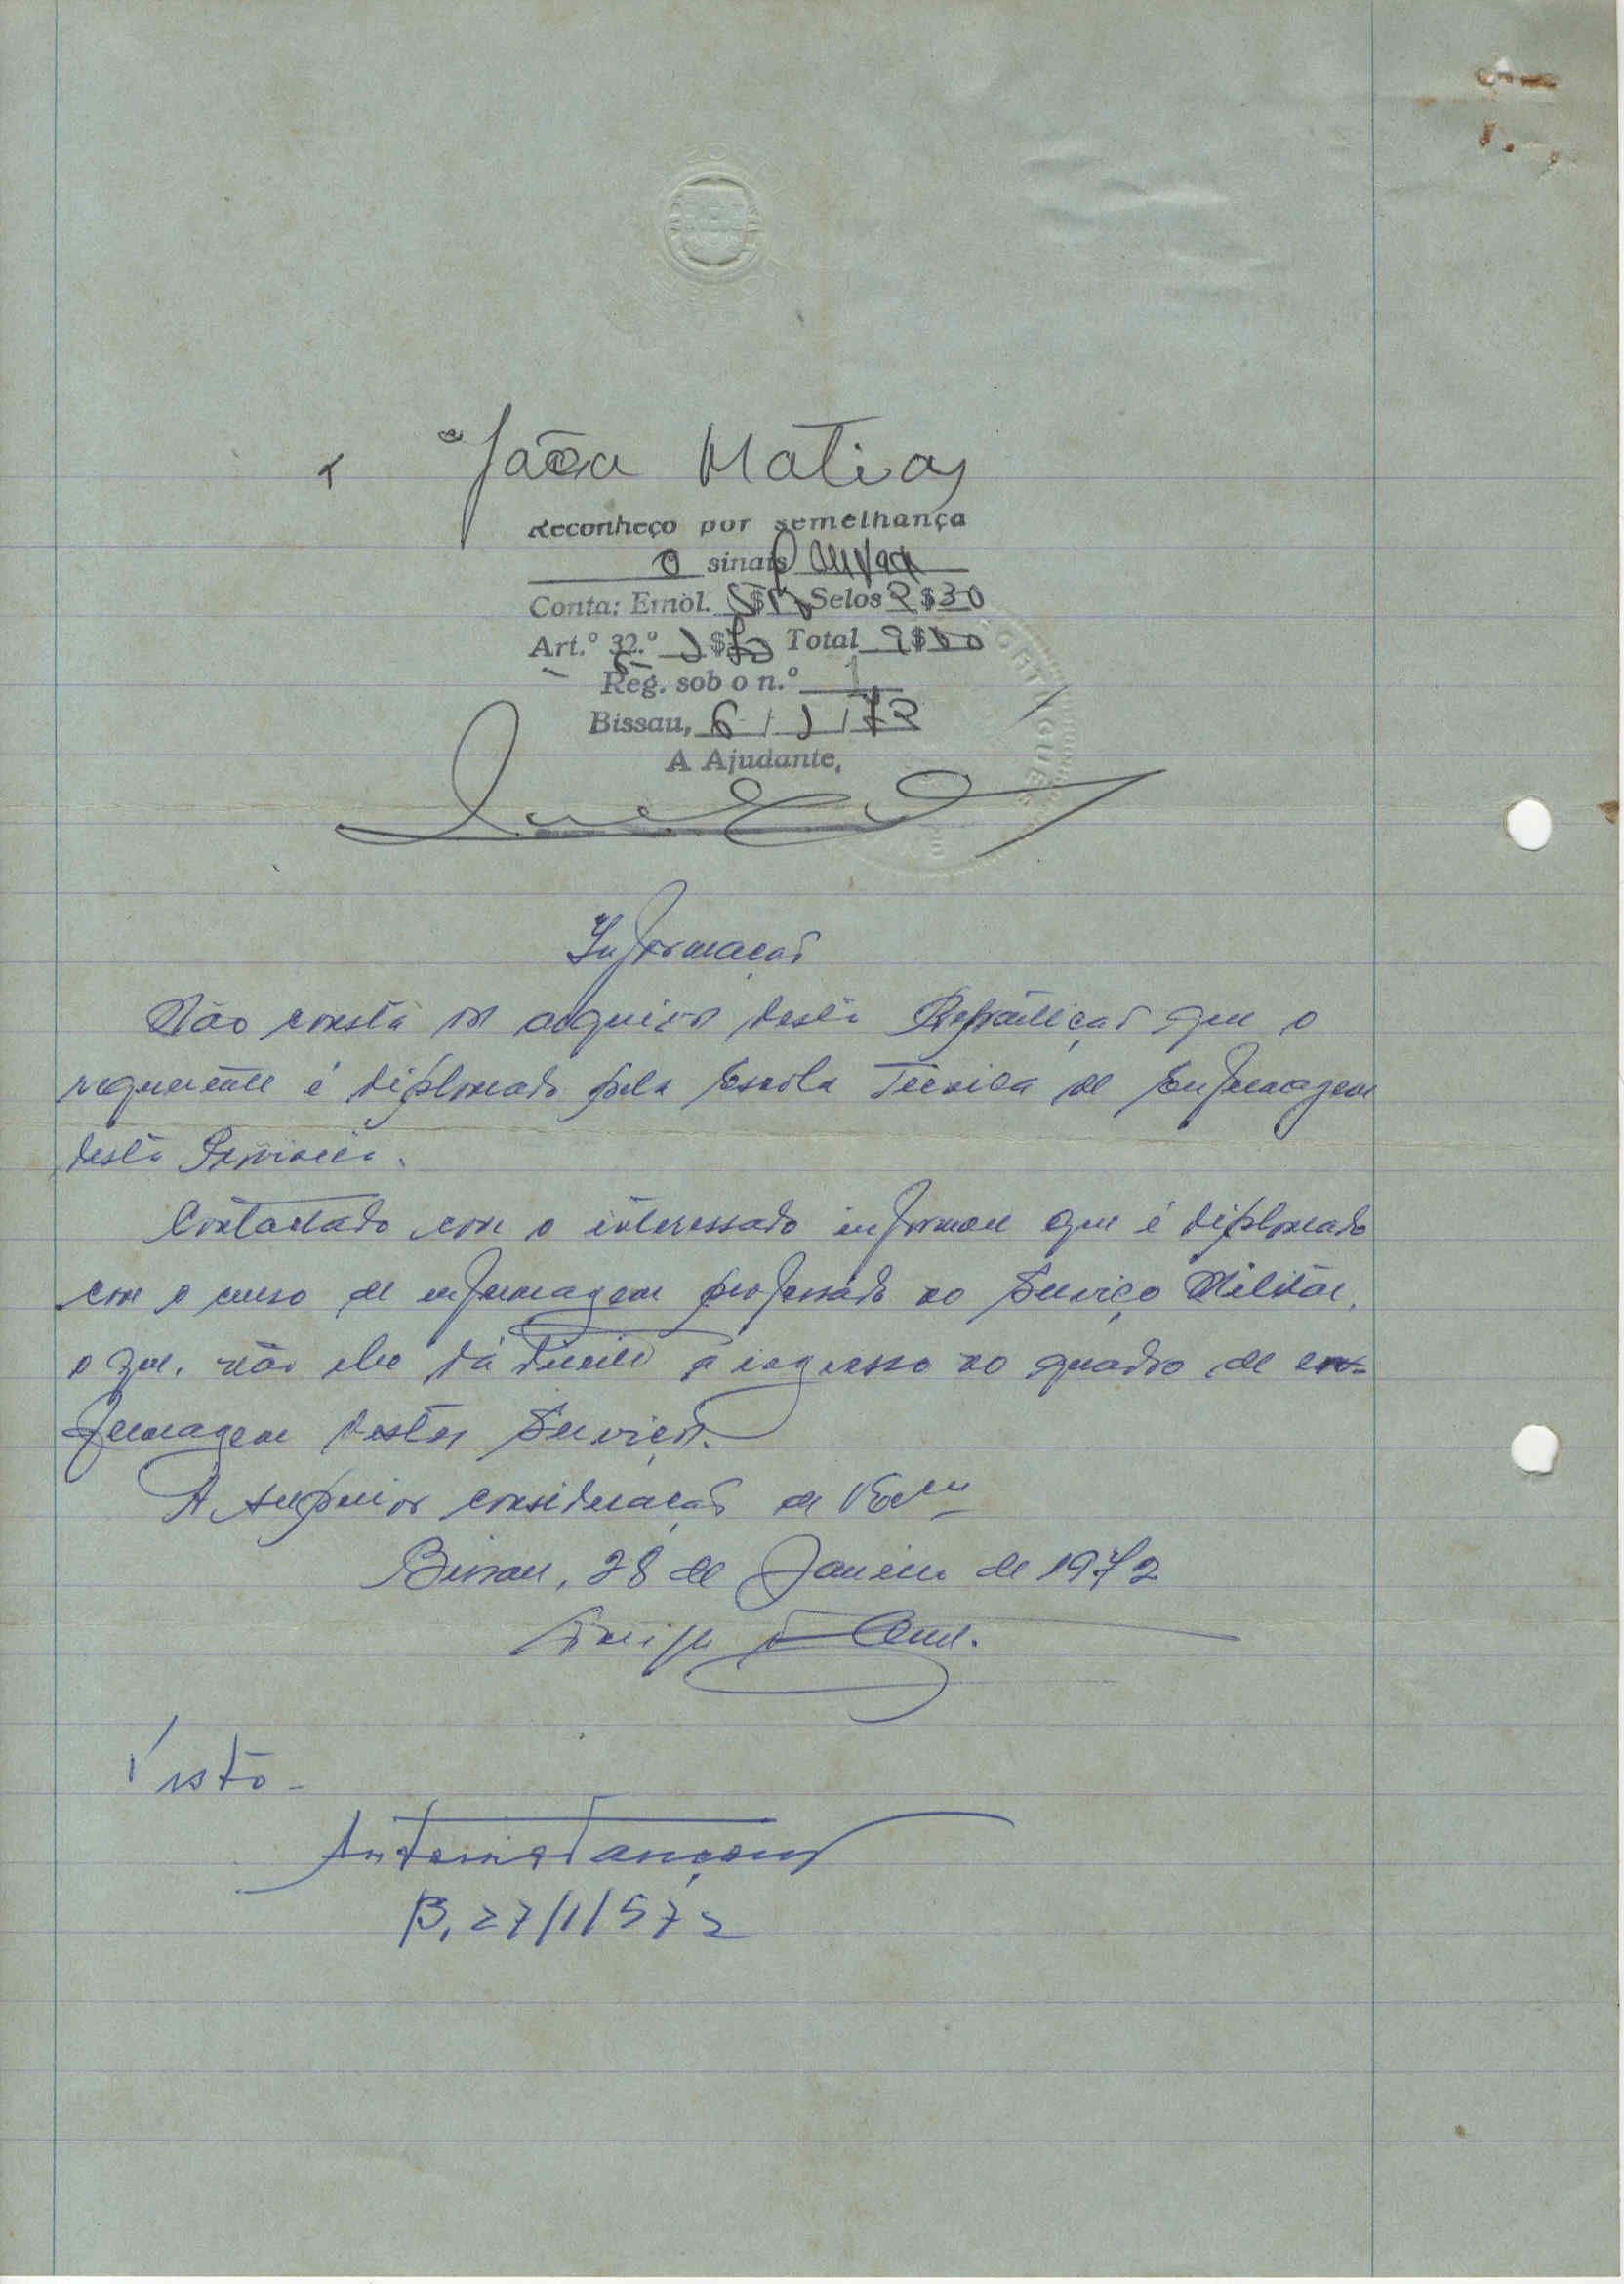 João Matias
Reconheço por semelhança
O sinais
Conta: Emol. $ Selos 2$30
Art.º 32.º $ Total 9$
Reg. sob o n.º 1
Bissau, 6 / 1 / 72
A Ajudante,
Informação
Não consta nos arquivos desta Repartição que o
requerente é diplomado pela Escola Técnica de Enfermagem
desta Província.
Contactado com o interessado informou que é diplomado
com o curso de enfermagem professado no Serviço Militar,
o que, não lhe dá direito a ingresso no quadro de en-
fermagem destes Serviços.
À superior consideração de V. Ex.cia
Bissau, 28 de Janeiro de 1972
Visto -
B, 27/1/972